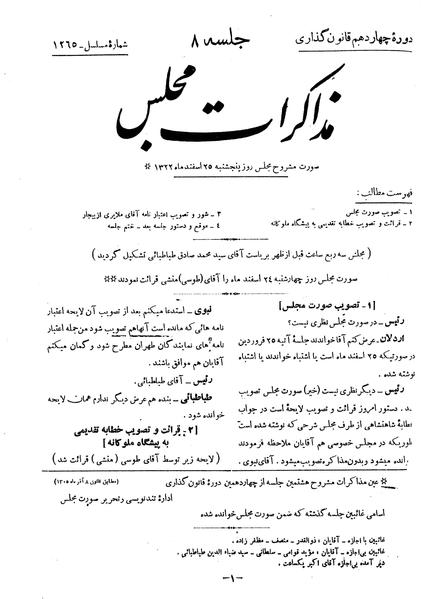 دورهٔ چهاردهم قانون گذاری
جلسه ۸
شمارهٔ مسلسل ۱۲۶۵
مذاکرات مجلس
صورت مشروح مجلس روز پنجشنبه ۲۵ اسفند ماه ۱۳۲۲
فهرست مطالب:
۱ - تصویب صورت مجلس
۲ - قرائت و تصویب خطابه تقدیمی به پیشگاه ملوکانه
۳ - شور و تصویب اعتبار نامه آقای ملایری از بیجار
۴ - موقع و دستور جلسه بعد - ختم جلسه
( مجلس سه ربع ساعت قبل از ظهر بریاست آقای سید محمد صادق طباطبائی تشکیل گردید )
صورت مجلس روز چهارشنبه ۲۴ اسفند ماه را آقای (طوسی) منشی قرائت نمودند
[۱ - تصویب صورت مجلس]
رئیس - در صورت مجلس نظری نیست؟
اردلان - عرض کنم آقا خواندند جلسهٔ آتیه ۲۵ فروردین
در صورتیکه ۲۵ اسفند ماه است یا اشتباه خواندند یا اشتباه
نوشته شده .
رئیس - دیگر نظری نیست (خیر) صورت مجلس تصویب
د . دستور امروز قرائت و تصویب لایحهٔ است در جواب
طابهٔ شاهنشاهی از طرف مجلس شرحی که نوشته شده است
طوریکه در مجلس خصوصی هم آقایان ملاحظه فرمودند
انده میشود و بدون مذاکره تصویب میشود . آقای نبوی .
نبوی - استدعا میکنم بعد از تصویب آن لایحه اعتبار
نامه هائی که مانده است آنها هم تصویب شود من جمله اعتبار
نامه های نمایندگان طهران مطرح شود و گمان میکنم
آقایان هم موافق باشند .
رئیس - آقای طباطبائی .
طباطبائی - بنده هم عرض دیگر ندارم همان لایحه
خوانده شود .
[۲ - قرائت و تصویب خطابه تقدیمی
به پیشگاه ملوکانه]
( لایحه زیر توسط آقای طوسی (منشی) قرائت شد )
عین مذاکرات مشروح هشتمین جلسه از چهاردهمین دورهٔ قانون گذاری
(مطابق قانون ۸ آذر ماه ۱۳۰۵)
ادارهٔ تندنویسی و تحریر صورت مجلس
اسامی غائبین جلسه گذشته که ضمن صورت مجلس خوانده شده
غائبین با اجازه - آقایان : ذوالقدر - منصف - مظفر زاده .
غائبین بی اجازه - آقایان : مؤید قوامی - سلطانی - سید ضیاء الدین طباطبائی .
دیر آمده بی اجازه آقای اکبر یکساعت .
- ۱ -